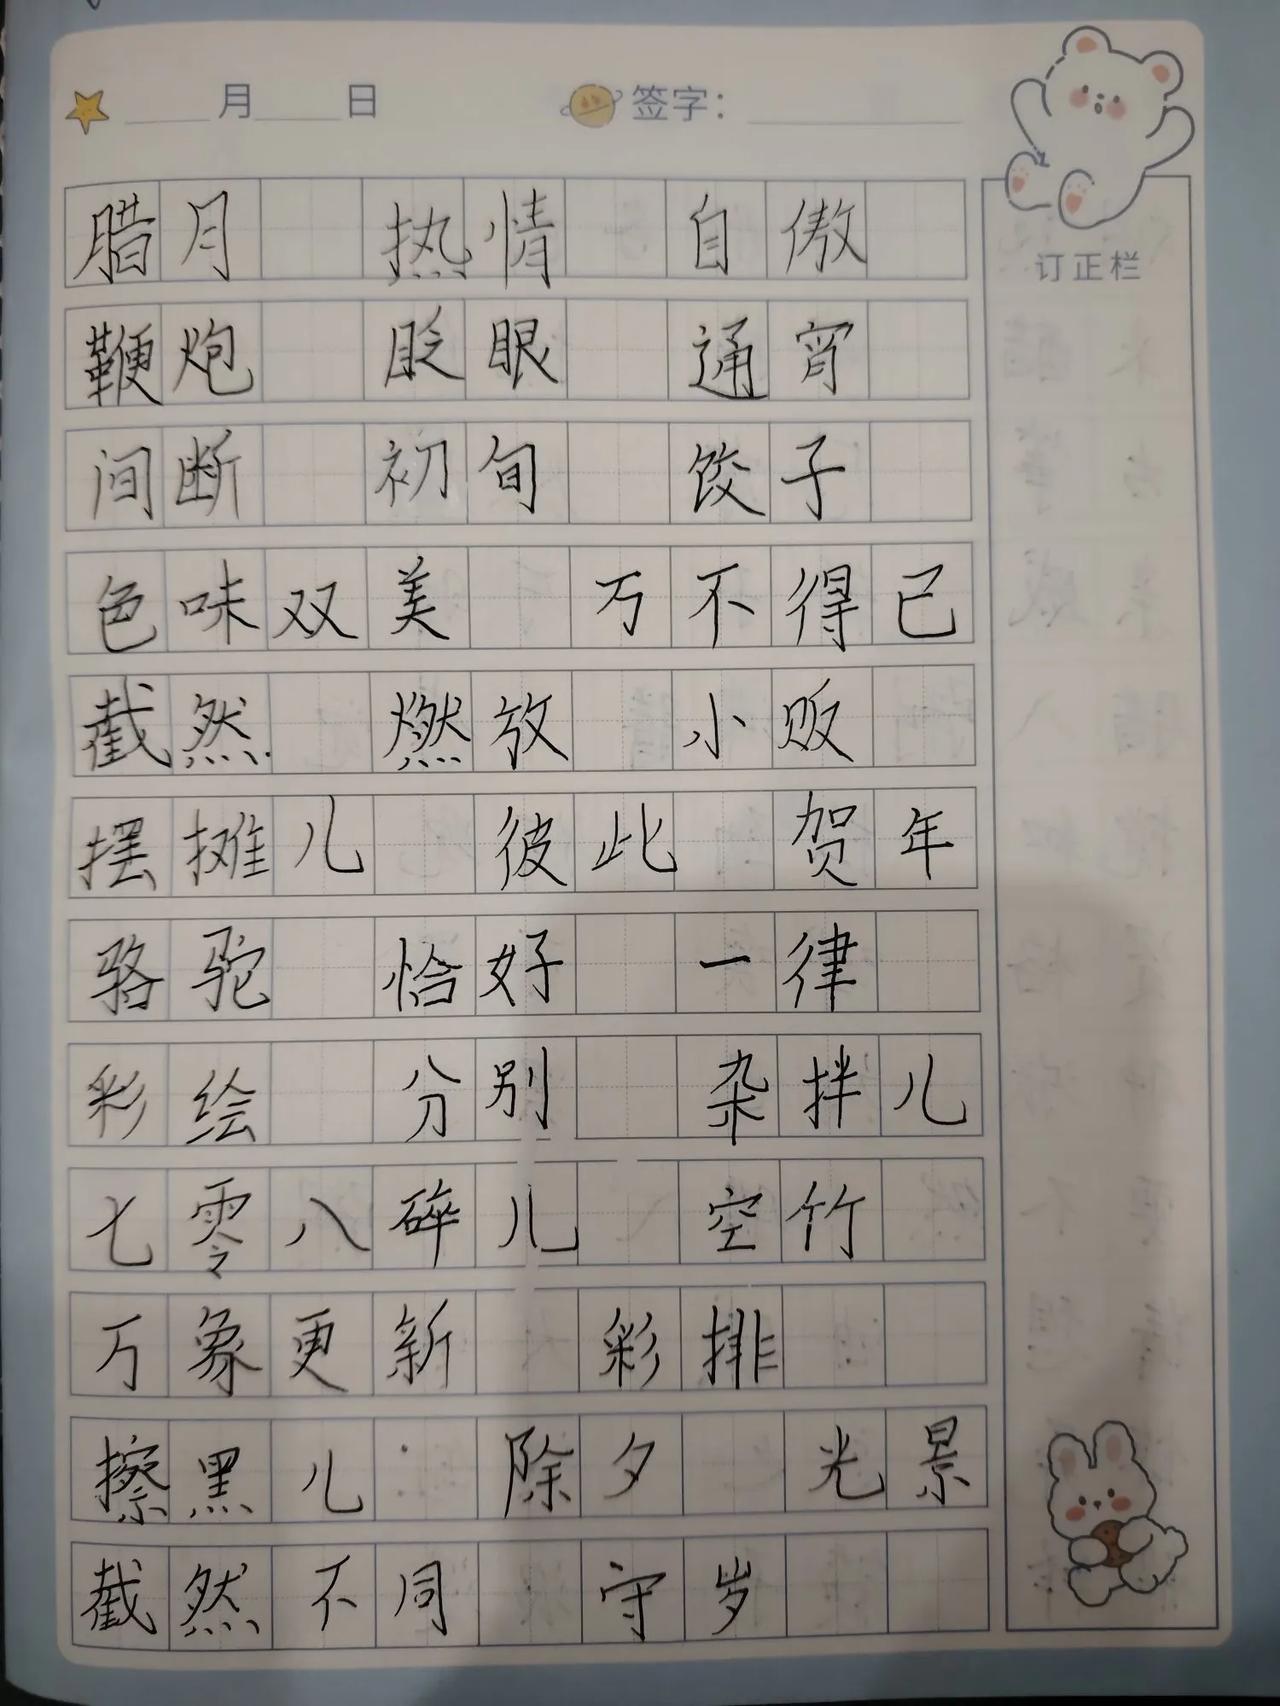 月 日 签字：
订正栏
腊月 热情 自傲
鞭炮 眨眼 通宵
间断 初旬 饺子
色味双美 万不得已
截然 燃放 小贩
摆摊儿 彼此 贺年
骆驼 恰好 一律
彩绘 分别 杂拌儿
七零八碎儿 空竹
万象更新 彩排
擦黑儿 除夕 光景
截然不同 守岁